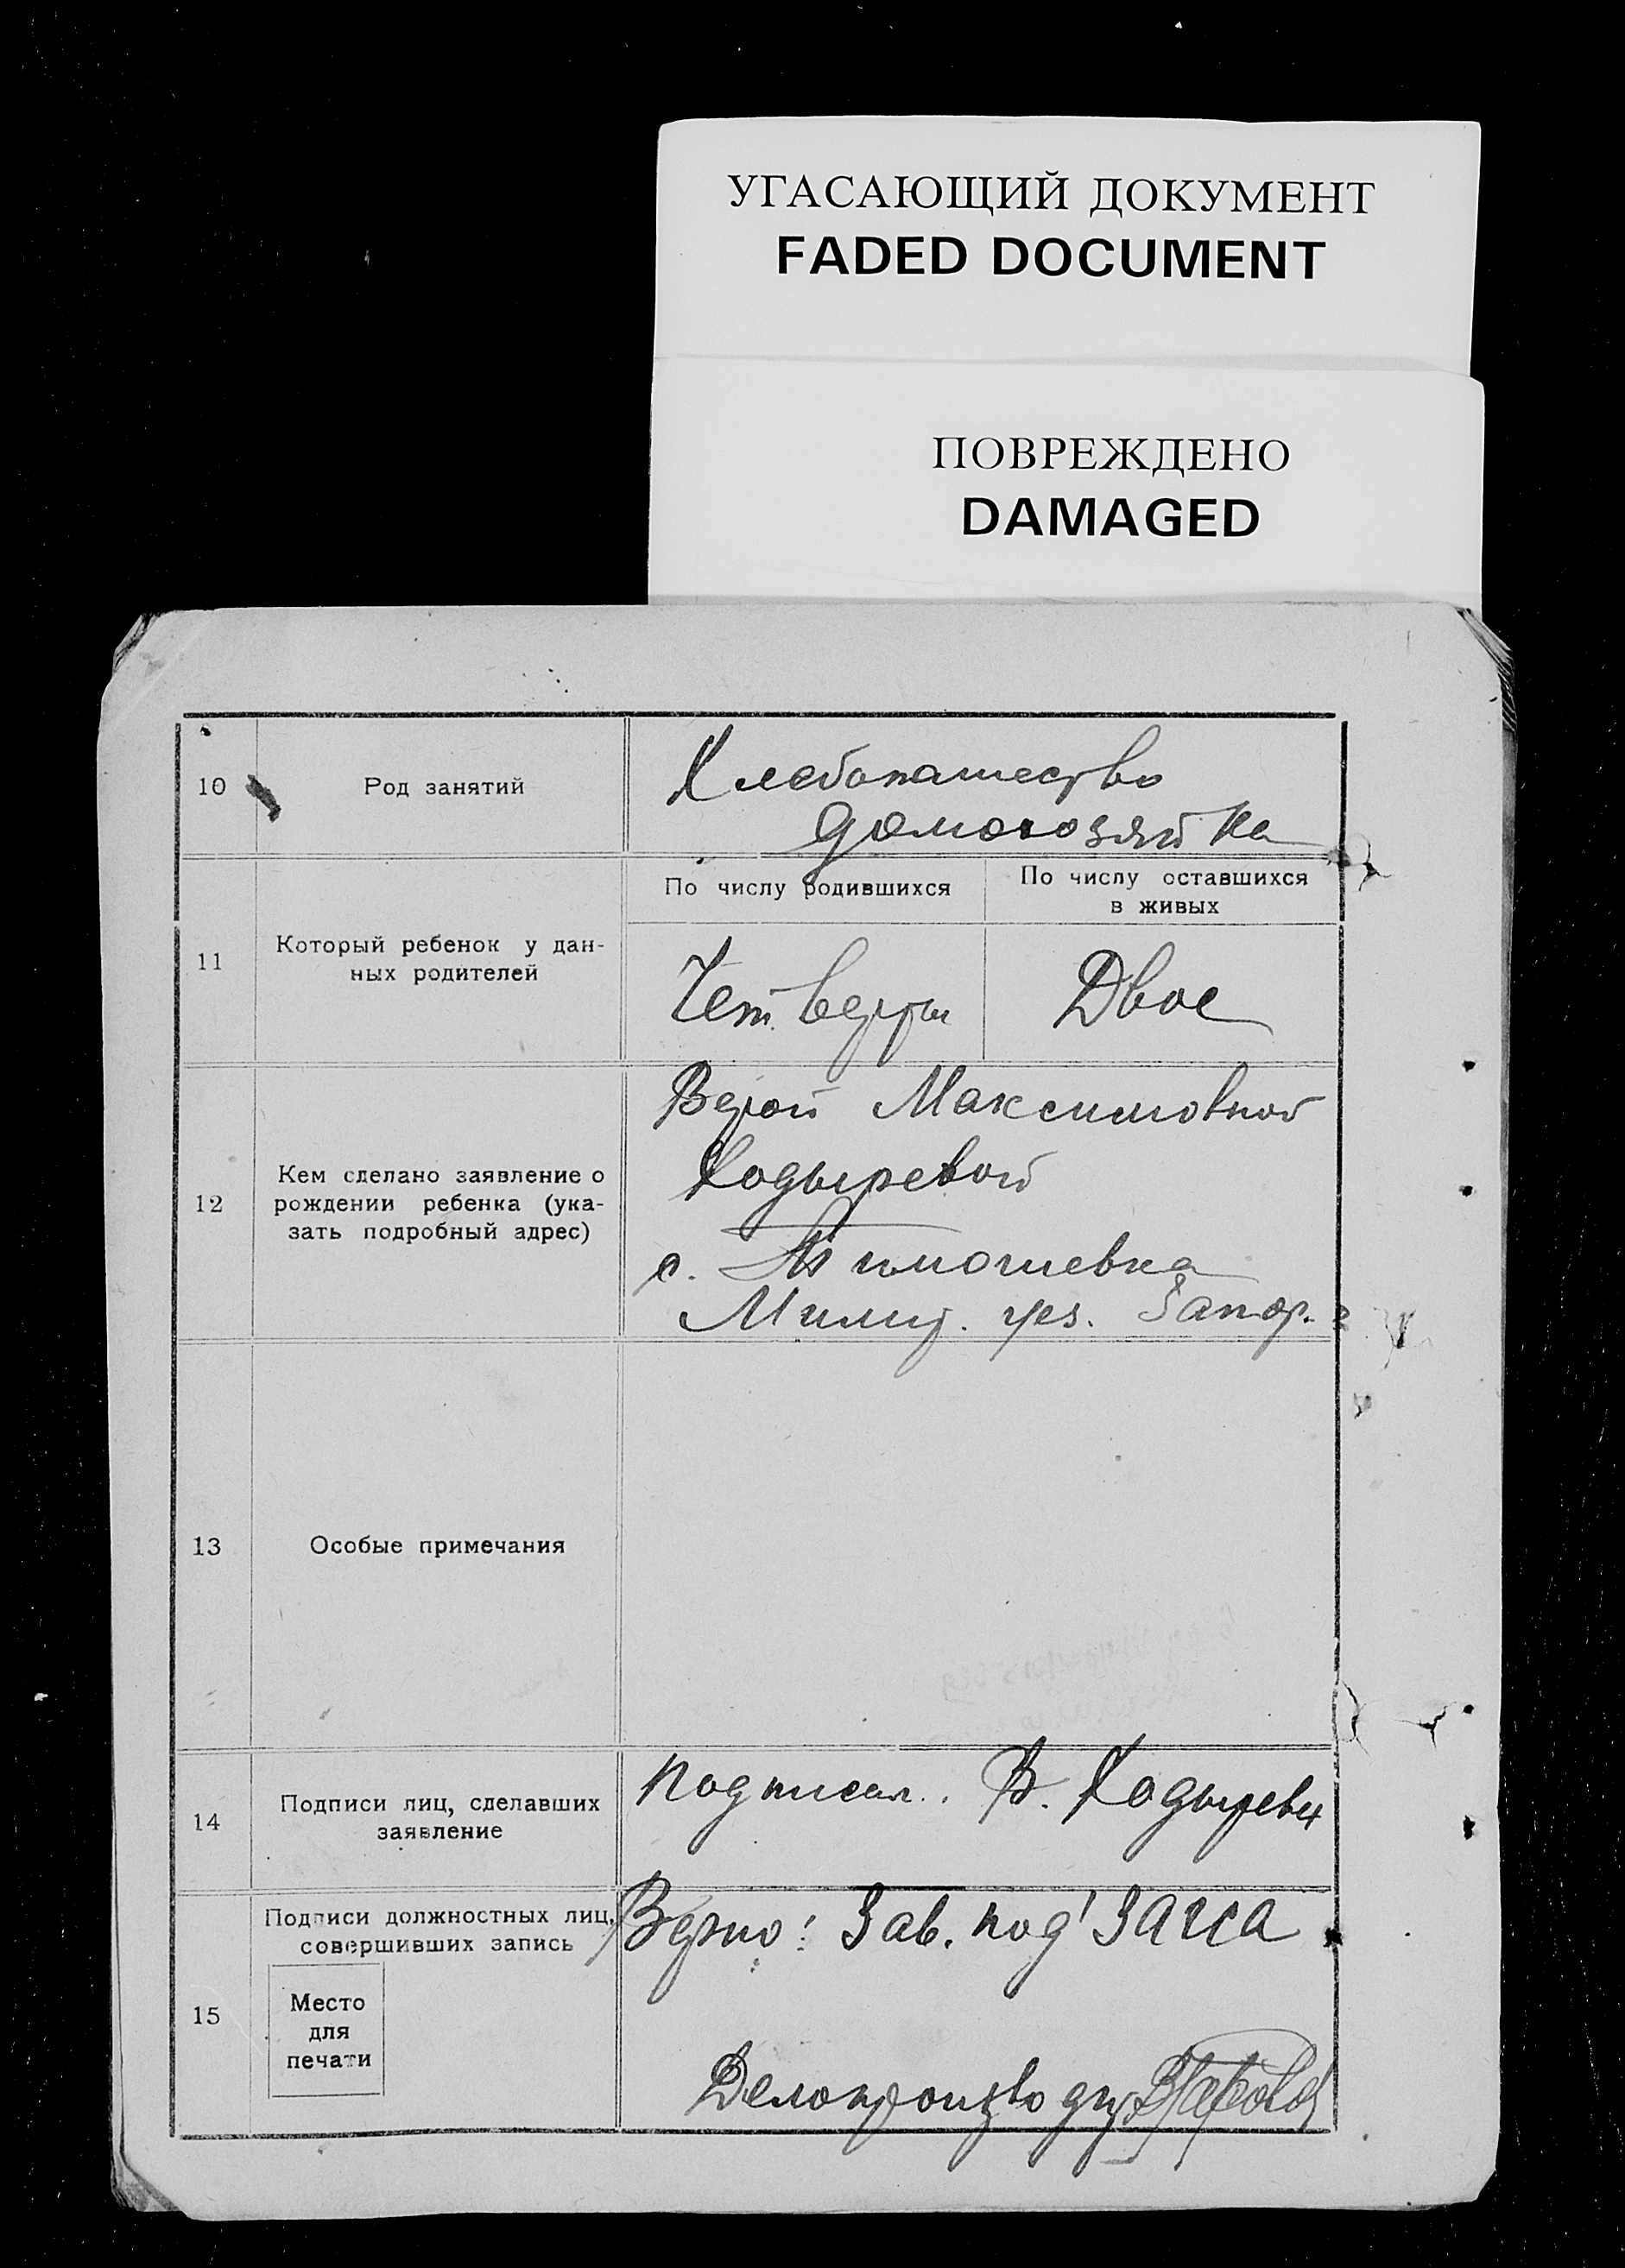 УГАСАЮЩИЙ ДОКУМЕНТ
FADED DOCUMENT
ПОВРЕЖДЕНО
DAMAGED
10
Род занятий
Хлебопашество
домохозяйка
11
Который ребенок у дан-
ных родителей
По числу родившихся
Четверты
По числу оставшихся
в живых
Двое
12
Кем сделано заявление о
рождении ребенка (ука-
зать подробный адрес)
Верой Максимовной
Кодыревой
с. Тимошевка
Мелит. уез. Запор.
13
Особые примечания
14
Подписи лиц, сделавших
заявление
Подписал. В. Кодырева
15
Подписи должностных лиц,
совершивших запись
Место
для
печати
Верно: Зав. под ЗАГСА
Делопроизводит